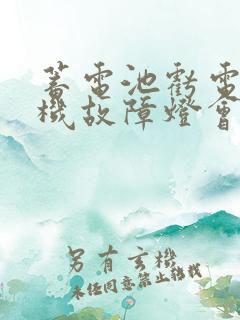 蓄電池虧電
機故障燈會
另有玄機
未經同意禁止轉載